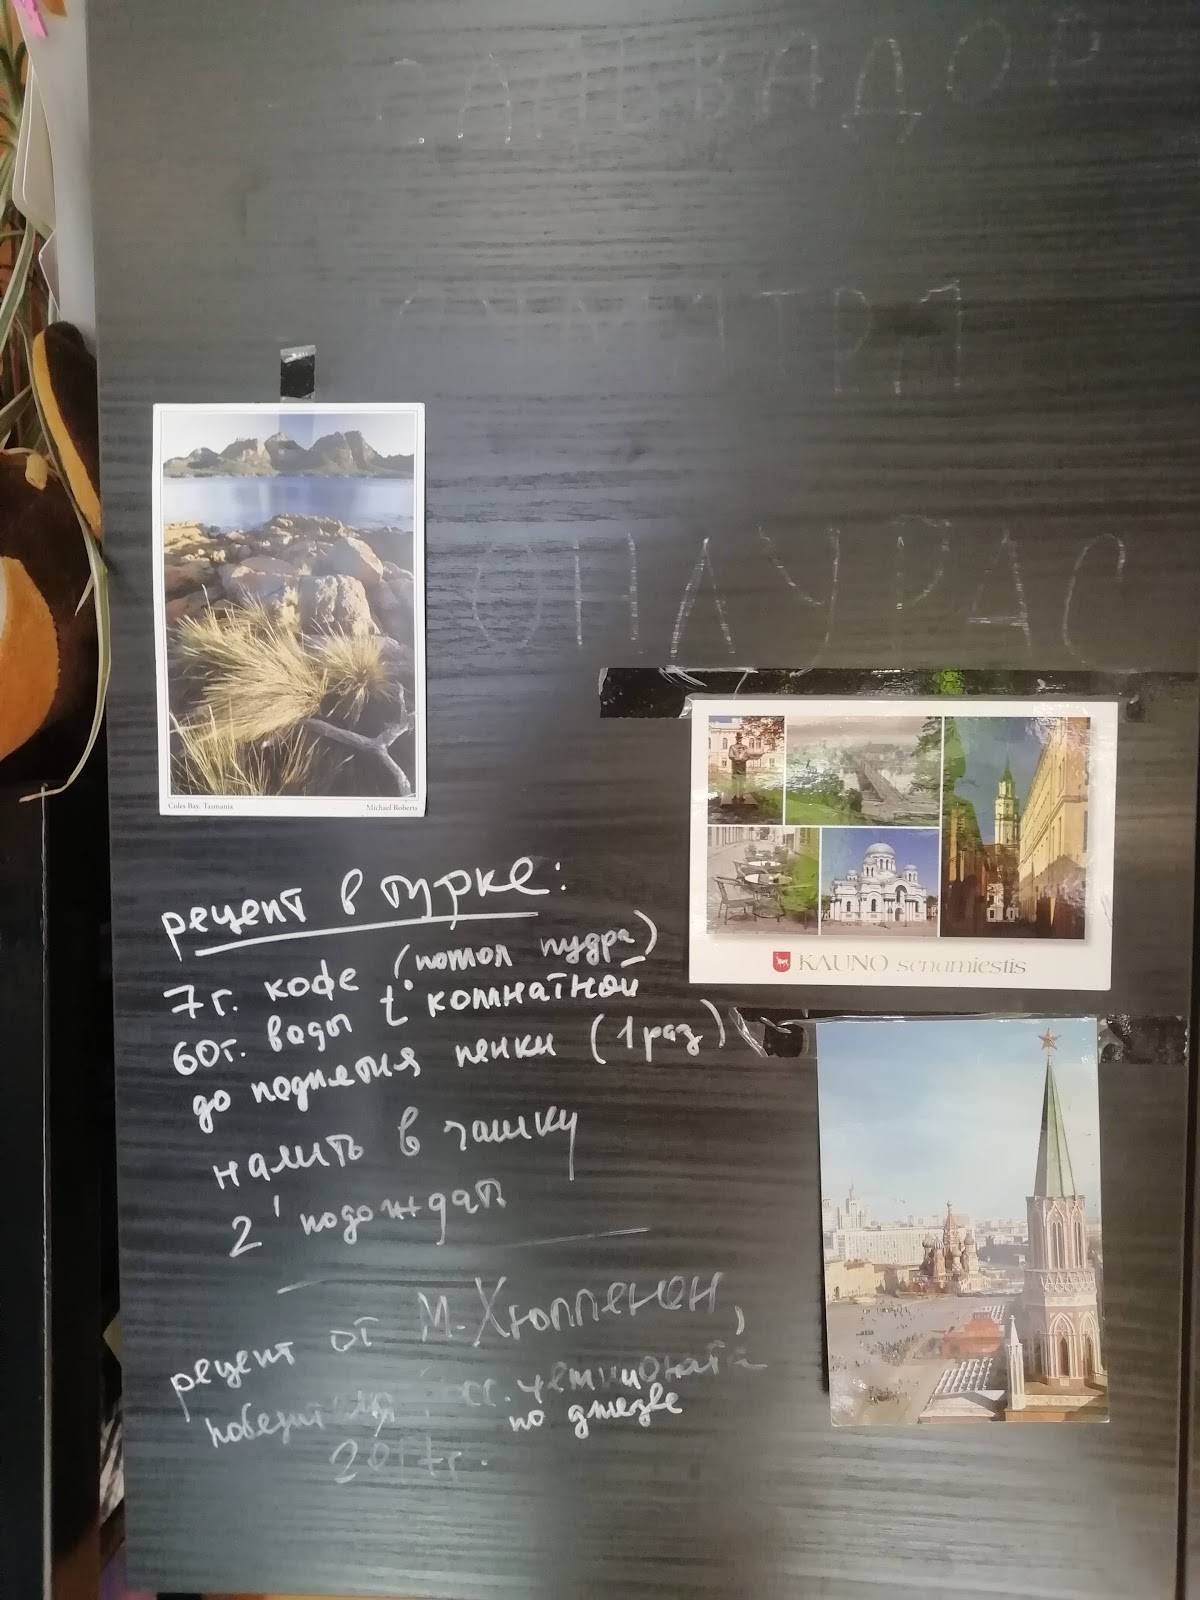 САЛЬВАДОР
СУМАТРА
ГОНДУРАС
Coles Bay, Tasmania Michael Roberts
KAUNO senamiestis
рецепт в турке:
7г. кофе (помол пудра)
60г. воды t° комнатной
до поднятия пенки (1 раз)
налить в чашку
2' подождать
рецепт от М. Хюппенен,
победителя росс. чемпионата
по джезве
2017г.